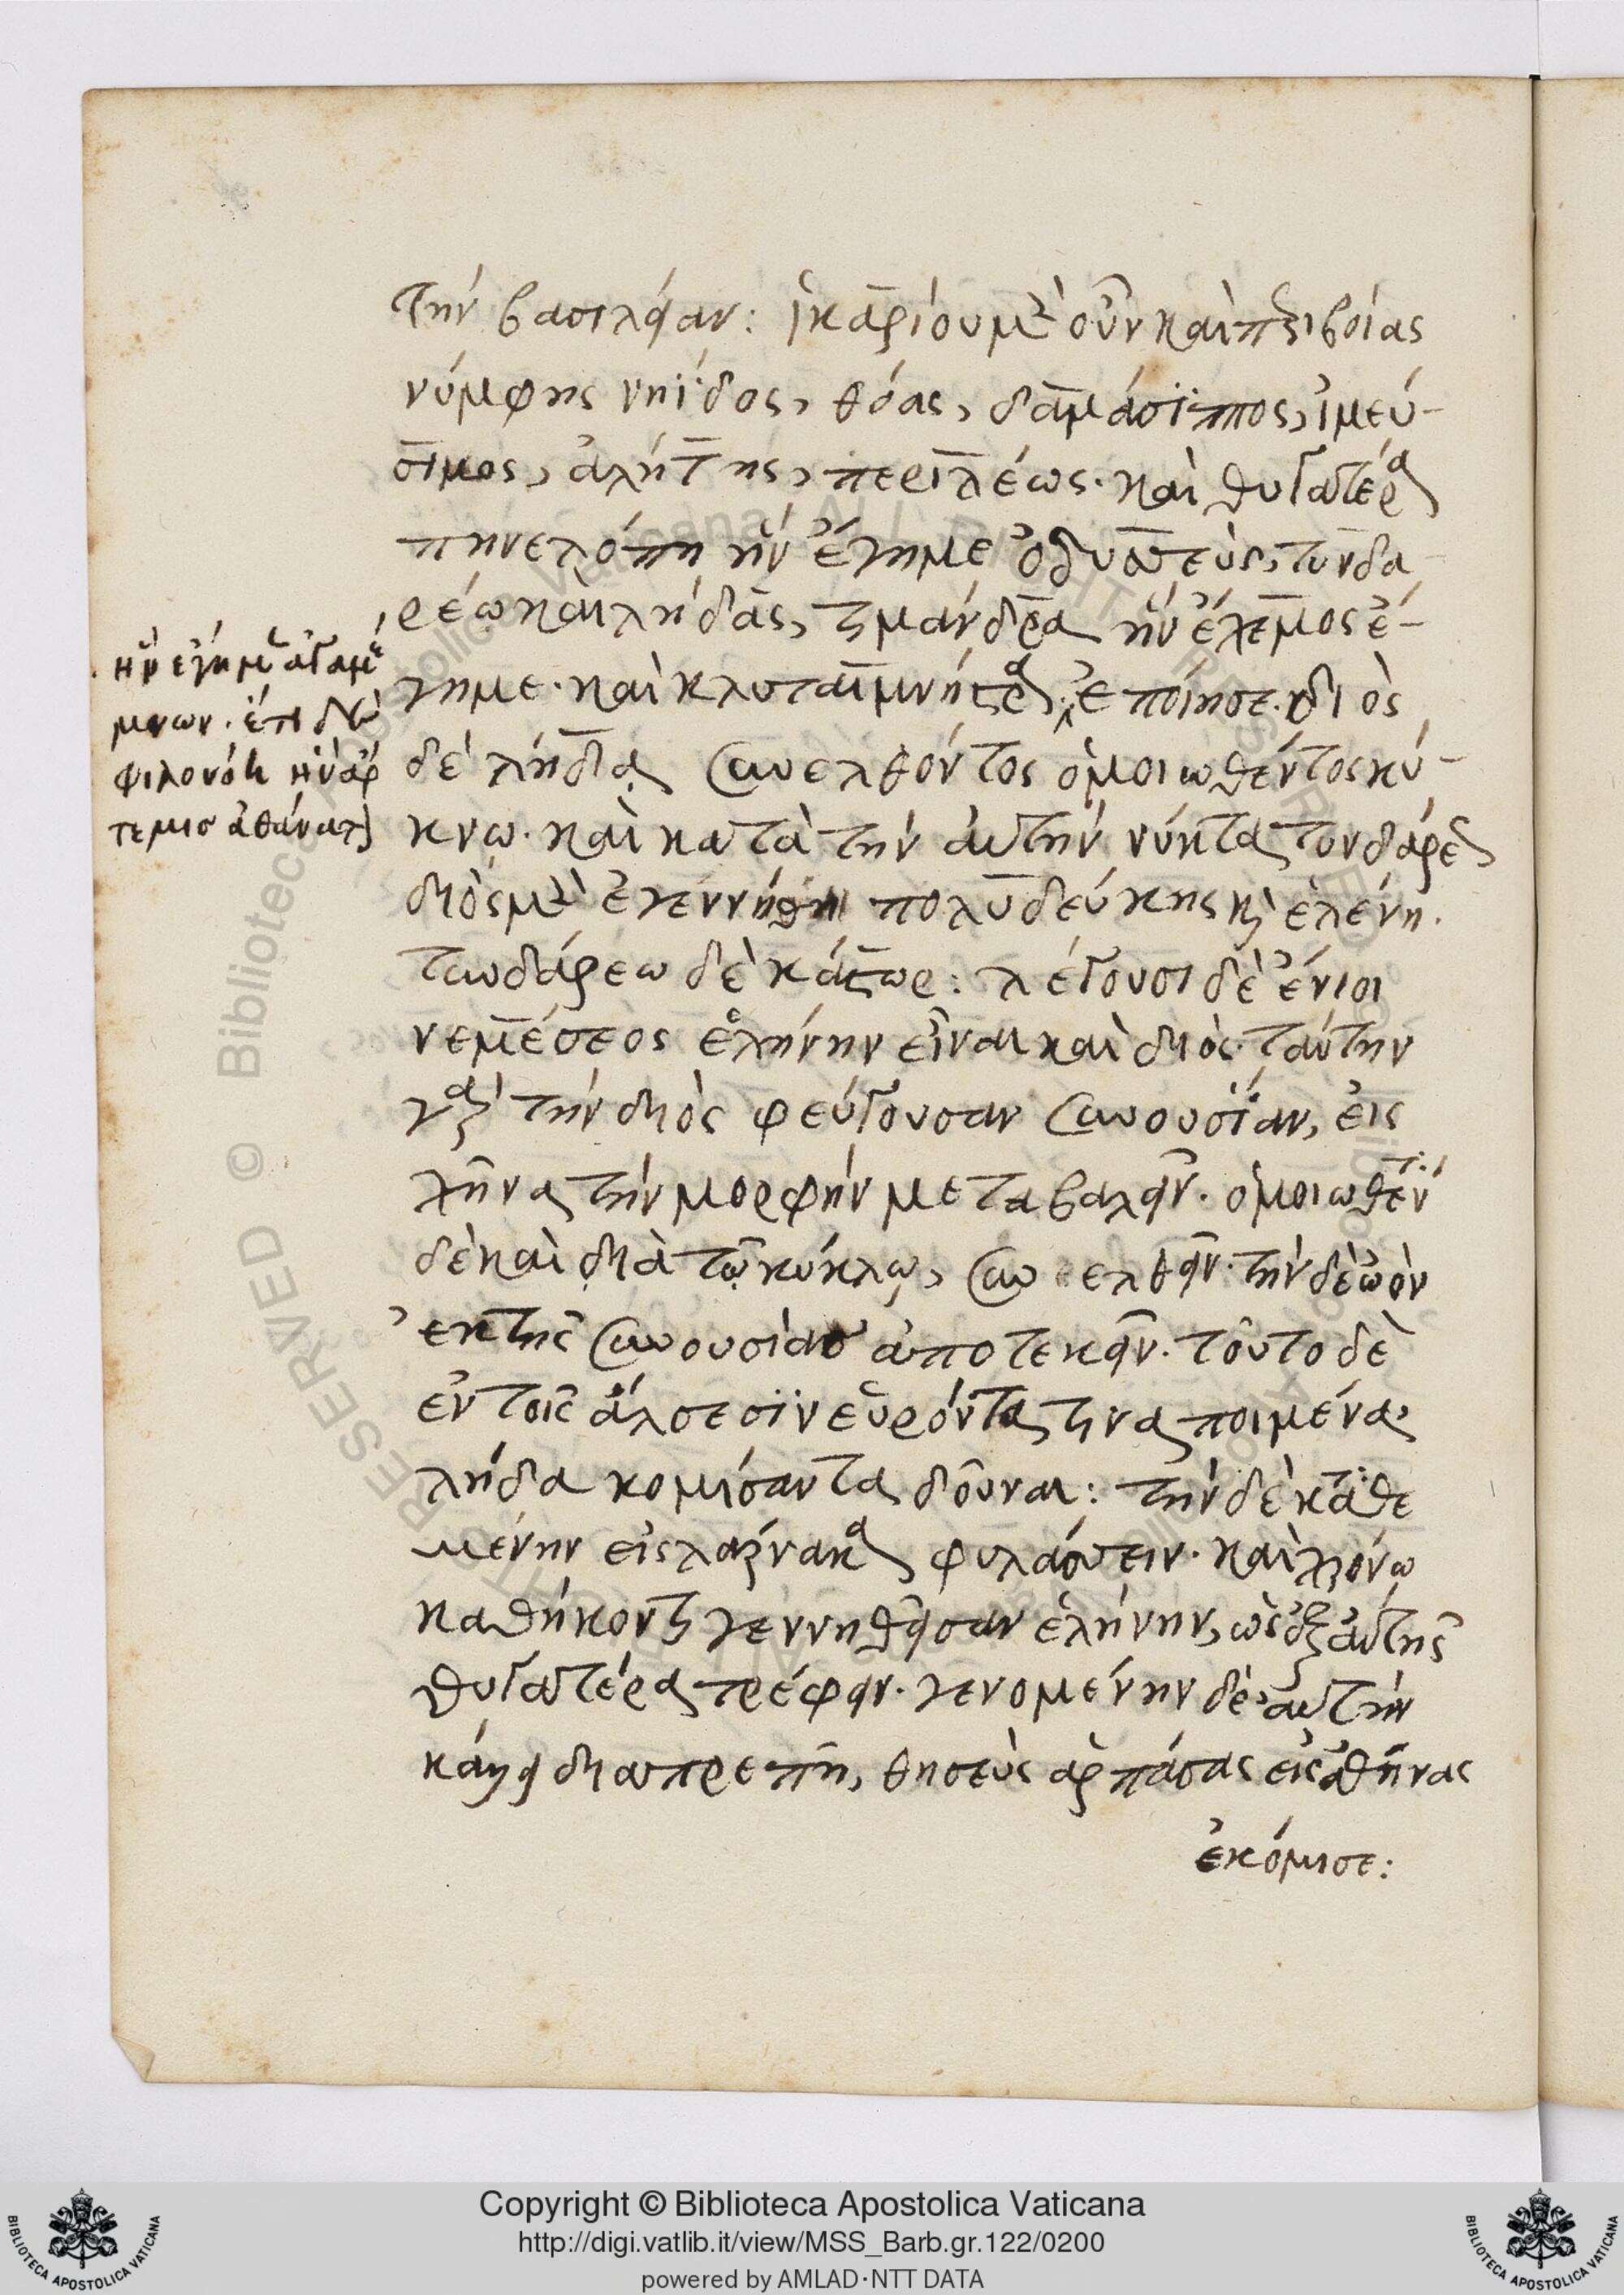 τὴν βασιλείαν: ἰκαρίου μὲν οὖν καὶ περιβοίας
νύμφης νηΐδος, θόας, δαμάσιππος, ἰμεύ-
σιμος, ἀλήτης, περιλέως. καὶ θυγατέρα
πηνελόπη ἣν ἔγημε ὀδυσσεύς, τυνδα
ρέω καὶ λήδας, τιμάνδρα ἣν ἔχεμος ἔ-
γημε. καὶ κλυταιμνήστρα. ἐποίησε. διὸς
δὲ λήδα συνελθόντος ὁμοιωθέντος κύ-
κνω. καὶ κατὰ τὴν αὐτὴν νύκτα τονδάρεως
διὸς μὲν ἐγεννήθη πολυδεύκης καὶ ἑλένη.
τυνδάρεω δὲ κάστωρ: λέγουσι δὲ ἔνιοι
νεμέσεος ἑλήνην εἶναι καὶ διός. ταύτην
γὰρ τὴν διὸς φεύγουσαν συνουσίαν, εἰς
χῆνα τὴν μορφὴν μεταβαλεῖν. ὁμοιωθέντ
δὲ καὶ δία τῶ κύκλω, συνελθεῖν. τὴν δὲ ὠὸν
ἐκ τῆς συνουσίας ἀποτεκεῖν. τοῦτο δὲ
ἐν τοῖς ἄλσεσιν εὑρόντα τινα ποιμένα,
λήδα κομίσαντα δοῦναι: τὴν δὲ καταθε
μένην εἰς λάρνακα φυλάσσειν. καὶ χρόνω
καθήκοντι γεννηθεῖσαν ἑλήνην, ὡς ἐξ αὐτῆς
θυγατέρα τρέφειν. γενομένην δὲ αὐτὴν
κάλλει διαπρεπῆ, θησεὺς ἁρπάσας εἰς ἀθήνας
ἐκόμισε:
ἣν ἔγημεν ἀγαμέ
μνων. ἔτι δὲ
φιλονόη ἣν ἄρ
τεμις ἀθάνατον
Copyright © Biblioteca Apostolica Vaticana
http://digi.vatlib.it/view/MSS_Barb.gr.122/0200
powered by AMLAD·NTT DATA
BIBLIOTECA APOSTOLICA VATICANA
BIBLIOTECA APOSTOLICA VATICANA